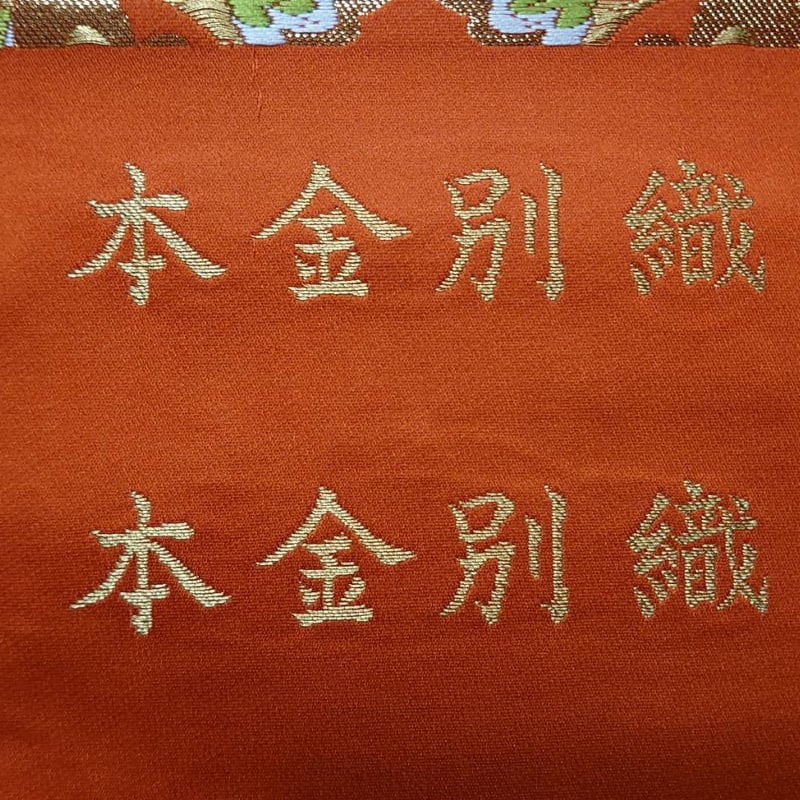 本金別織
本金別織